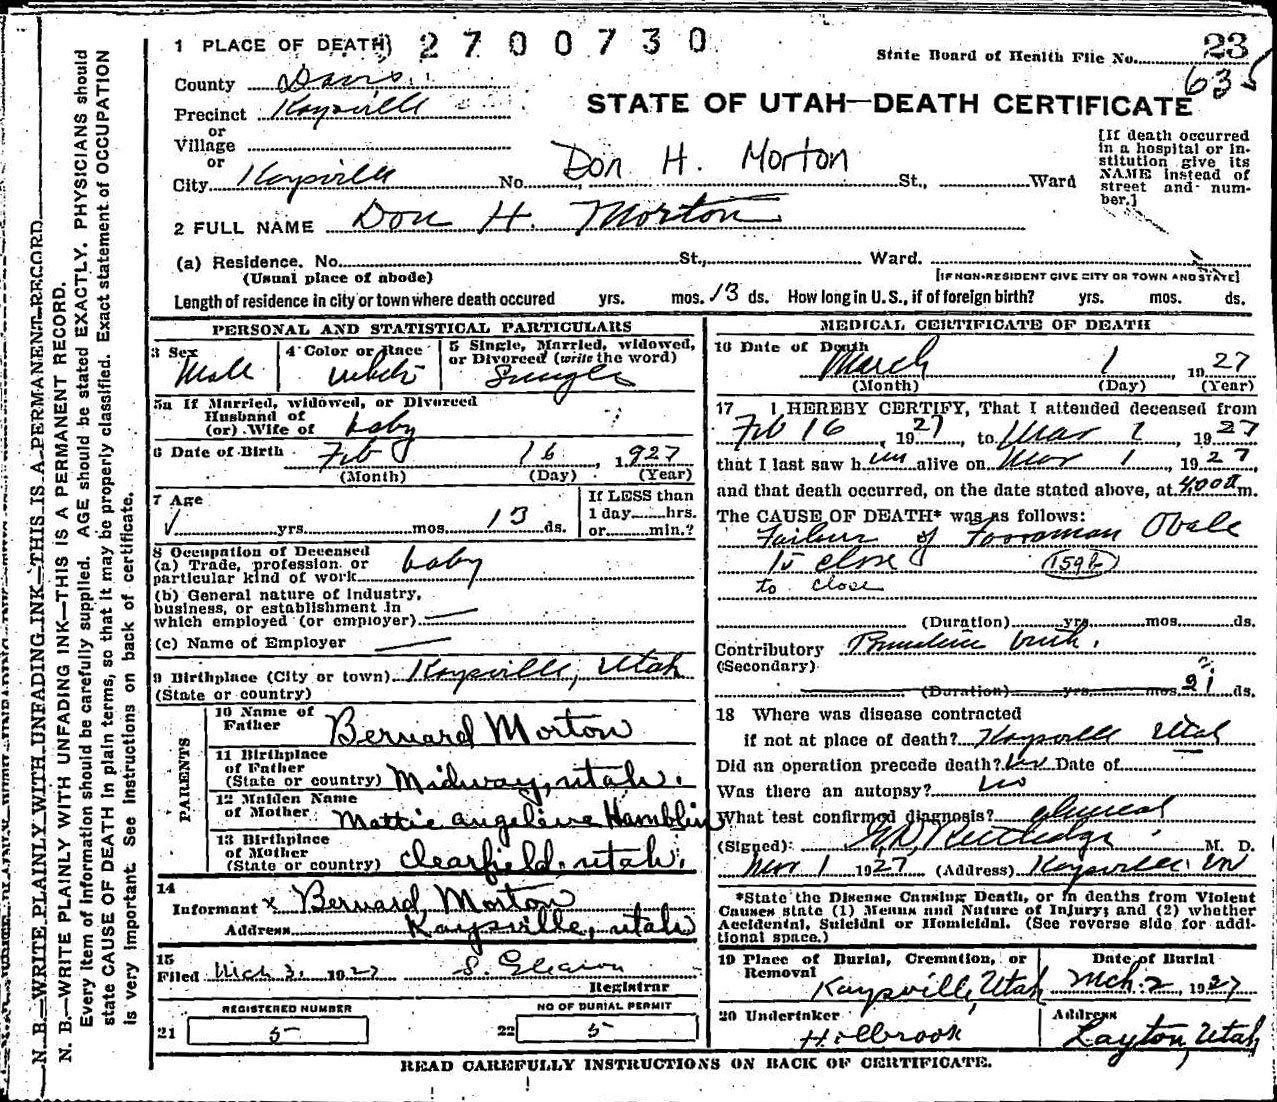 1 PLACE OF DEATH
2700730
State Board of Health File No. 23
635
County Davis
Precinct Kaysville
or
Village
or
City Kaysville No. Don H. Morton St., Ward
STATE OF UTAH—DEATH CERTIFICATE
[If death occurred
in a hospital or in-
stitution give its
NAME instead of
street and num-
ber.]
2 FULL NAME Don H. Morton
(a) Residence. No. St., Ward.
(Usual place of abode) [IF NON-RESIDENT GIVE CITY OR TOWN AND STATE]
Length of residence in city or town where death occured yrs. mos. 13 ds. How long in U. S., if of foreign birth? yrs. mos. ds.
PERSONAL AND STATISTICAL PARTICULARS
3 Sex 4 Color or Race 5 Single, Married, widowed,
or Divorced (write the word)
Male white Single
5a If Married, widowed, or Divorced
Husband of
(or) Wife of baby
6 Date of Birth Feb 16, 1927
(Month) (Day) (Year)
7 Age If LESS than
1 day hrs.
yrs. mos. 13 ds. or min.?
8 Occupation of Deceased
(a) Trade, profession or
particular kind of work baby
(b) General nature of industry,
business, or establishment in
which employed (or employer)
(c) Name of Employer
9 Birthplace (City or town) Kaysville, Utah
(State or country)
PARENTS
10 Name of
Father Bernard Morton
11 Birthplace
of Father
(State or country) Midway, Utah.
12 Maiden Name
of Mother Mattie Angeline Hamblin
13 Birthplace
of Mother
(State or country) Clearfield, Utah.
14
Informant x Bernard Morton
Address Kaysville, Utah
15
Filed Mch 3, 1927 S. Gleason
Registrar
REGISTERED NUMBER NO OF BURIAL PERMIT
21 5 22 5
MEDICAL CERTIFICATE OF DEATH
16 Date of Death
March 1, 1927
(Month) (Day) (Year)
17 I HEREBY CERTIFY, That I attended deceased from
Feb 16, 1927, to Mar 1, 1927
that I last saw him alive on Mar 1, 1927,
and that death occurred, on the date stated above, at 400 m.
The CAUSE OF DEATH* was as follows:
Failure of Forraman Ovale
to close 159b
to close
(Duration) yrs. mos. ds.
Contributory birth.
(Secondary)
(Duration) yrs. mos. ds.
18 Where was disease contracted
if not at place of death? Kaysville Utah
Did an operation precede death? Date of
Was there an autopsy? no
What test confirmed diagnosis? clinical
(Signed) G.D. Rutledge M. D.
Mar 1 1927 (Address) Kaysville
*State the Disease Causing Death, or in deaths from Violent
Causes state (1) Means and Nature of Injury; and (2) whether
Accidental, Suicidal or Homicidal. (See reverse side for addi-
tional space.)
19 Place of Burial, Cremation, or
Removal Date of Burial
Kaysville, Utah Mch. 2, 1927
20 Undertaker Address
Holbrook Layton, Utah
READ CAREFULLY INSTRUCTIONS ON BACK OF CERTIFICATE.
N. B.—WRITE PLAINLY WITH UNFADING INK—THIS IS A PERMANENT RECORD
N. B.—WRITE PLAINLY WITH UNFADING INK—THIS IS A PERMANENT RECORD.
Every item of information should be carefully supplied. AGE should be stated EXACTLY. PHYSICIANS should
state CAUSE OF DEATH in plain terms, so that it may be properly classified. Exact statement of OCCUPATION
is very important. See Instructions on back of certificate.